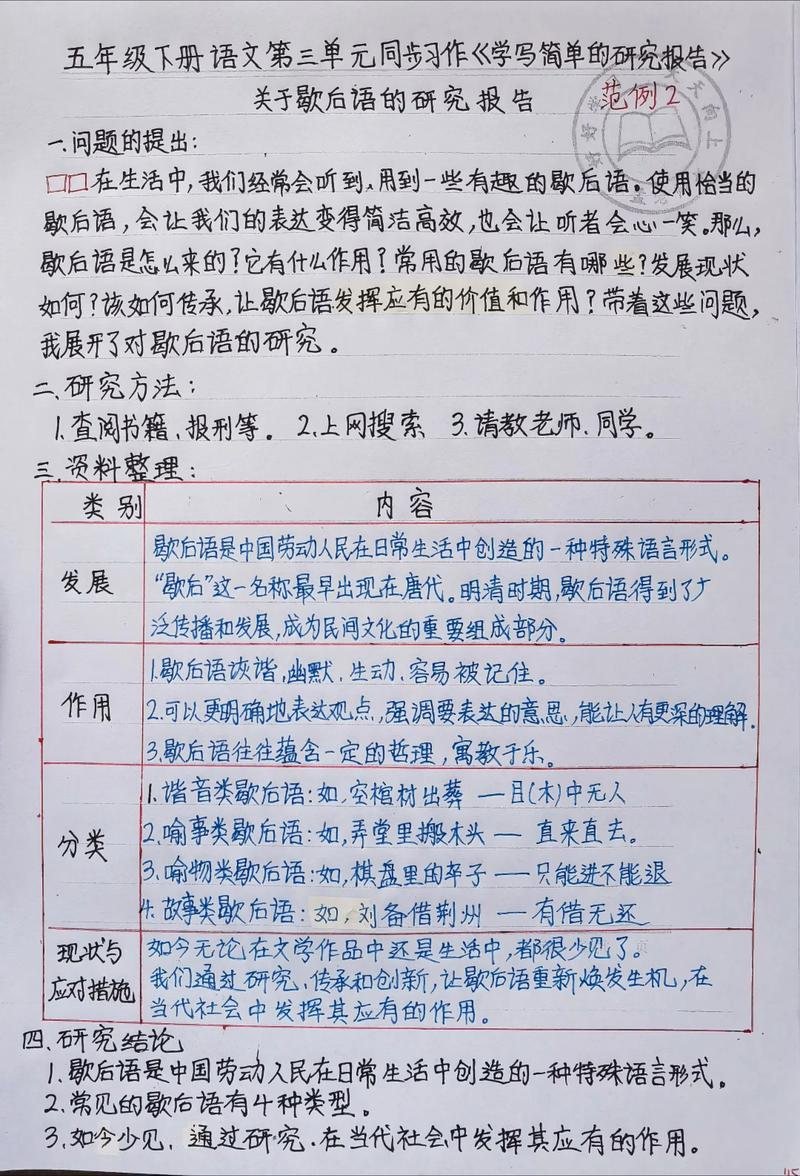 五年级下册语文第三单元同步习作《学写简单的研究报告》
关于歇后语的研究报告 范例2
天天向上
一.问题的提出:
□□在生活中,我们经常会听到、用到一些有趣的歇后语。使用恰当的
歇后语,会让我们的表达变得简洁高效,也会让听者会心一笑。那么,
歇后语是怎么来的?它有什么作用?常用的歇后语有哪些?发展现状
如何?该如何传承,让歇后语发挥应有的价值和作用?带着这些问题,
我展开了对歇后语的研究。
二.研究方法:
1.查阅书籍、报刊等。 2.上网搜索 3.请教老师、同学。
三.资料整理:
类别 内容
发展
歇后语是中国劳动人民在日常生活中创造的一种特殊语言形式。
“歇后”这一名称最早出现在唐代。明清时期,歇后语得到了广
泛传播和发展,成为民间文化的重要组成部分。
作用
1.歇后语诙谐,幽默、生动、容易被记住。
2.可以更明确地表达观点,强调要表达的意思,能让人有更深的理解.
3.歇后语往往蕴含一定的哲理,寓教于乐。
分类
1.谐音类歇后语:如,空棺材出葬 — 目(木)中无人
2.喻事类歇后语:如,弄堂里搬木头 — 直来直去。
3.喻物类歇后语:如,棋盘里的卒子 — 只能进不能退
4.故事类歇后语:如,刘备借荆州 — 有借无还
现状与
应对措施
如今无论在文学作品中还是生活中,都很少见了。
我们通过研究、传承和创新,让歇后语重新焕发生机,在
当代社会中发挥其应有的作用。
四.研究结论
1.歇后语是中国劳动人民在日常生活中创造的一种特殊语言形式。
2.常见的歇后语有4种类型。
3.如今少见,通过研究.在当代社会中发挥其应有的作用。